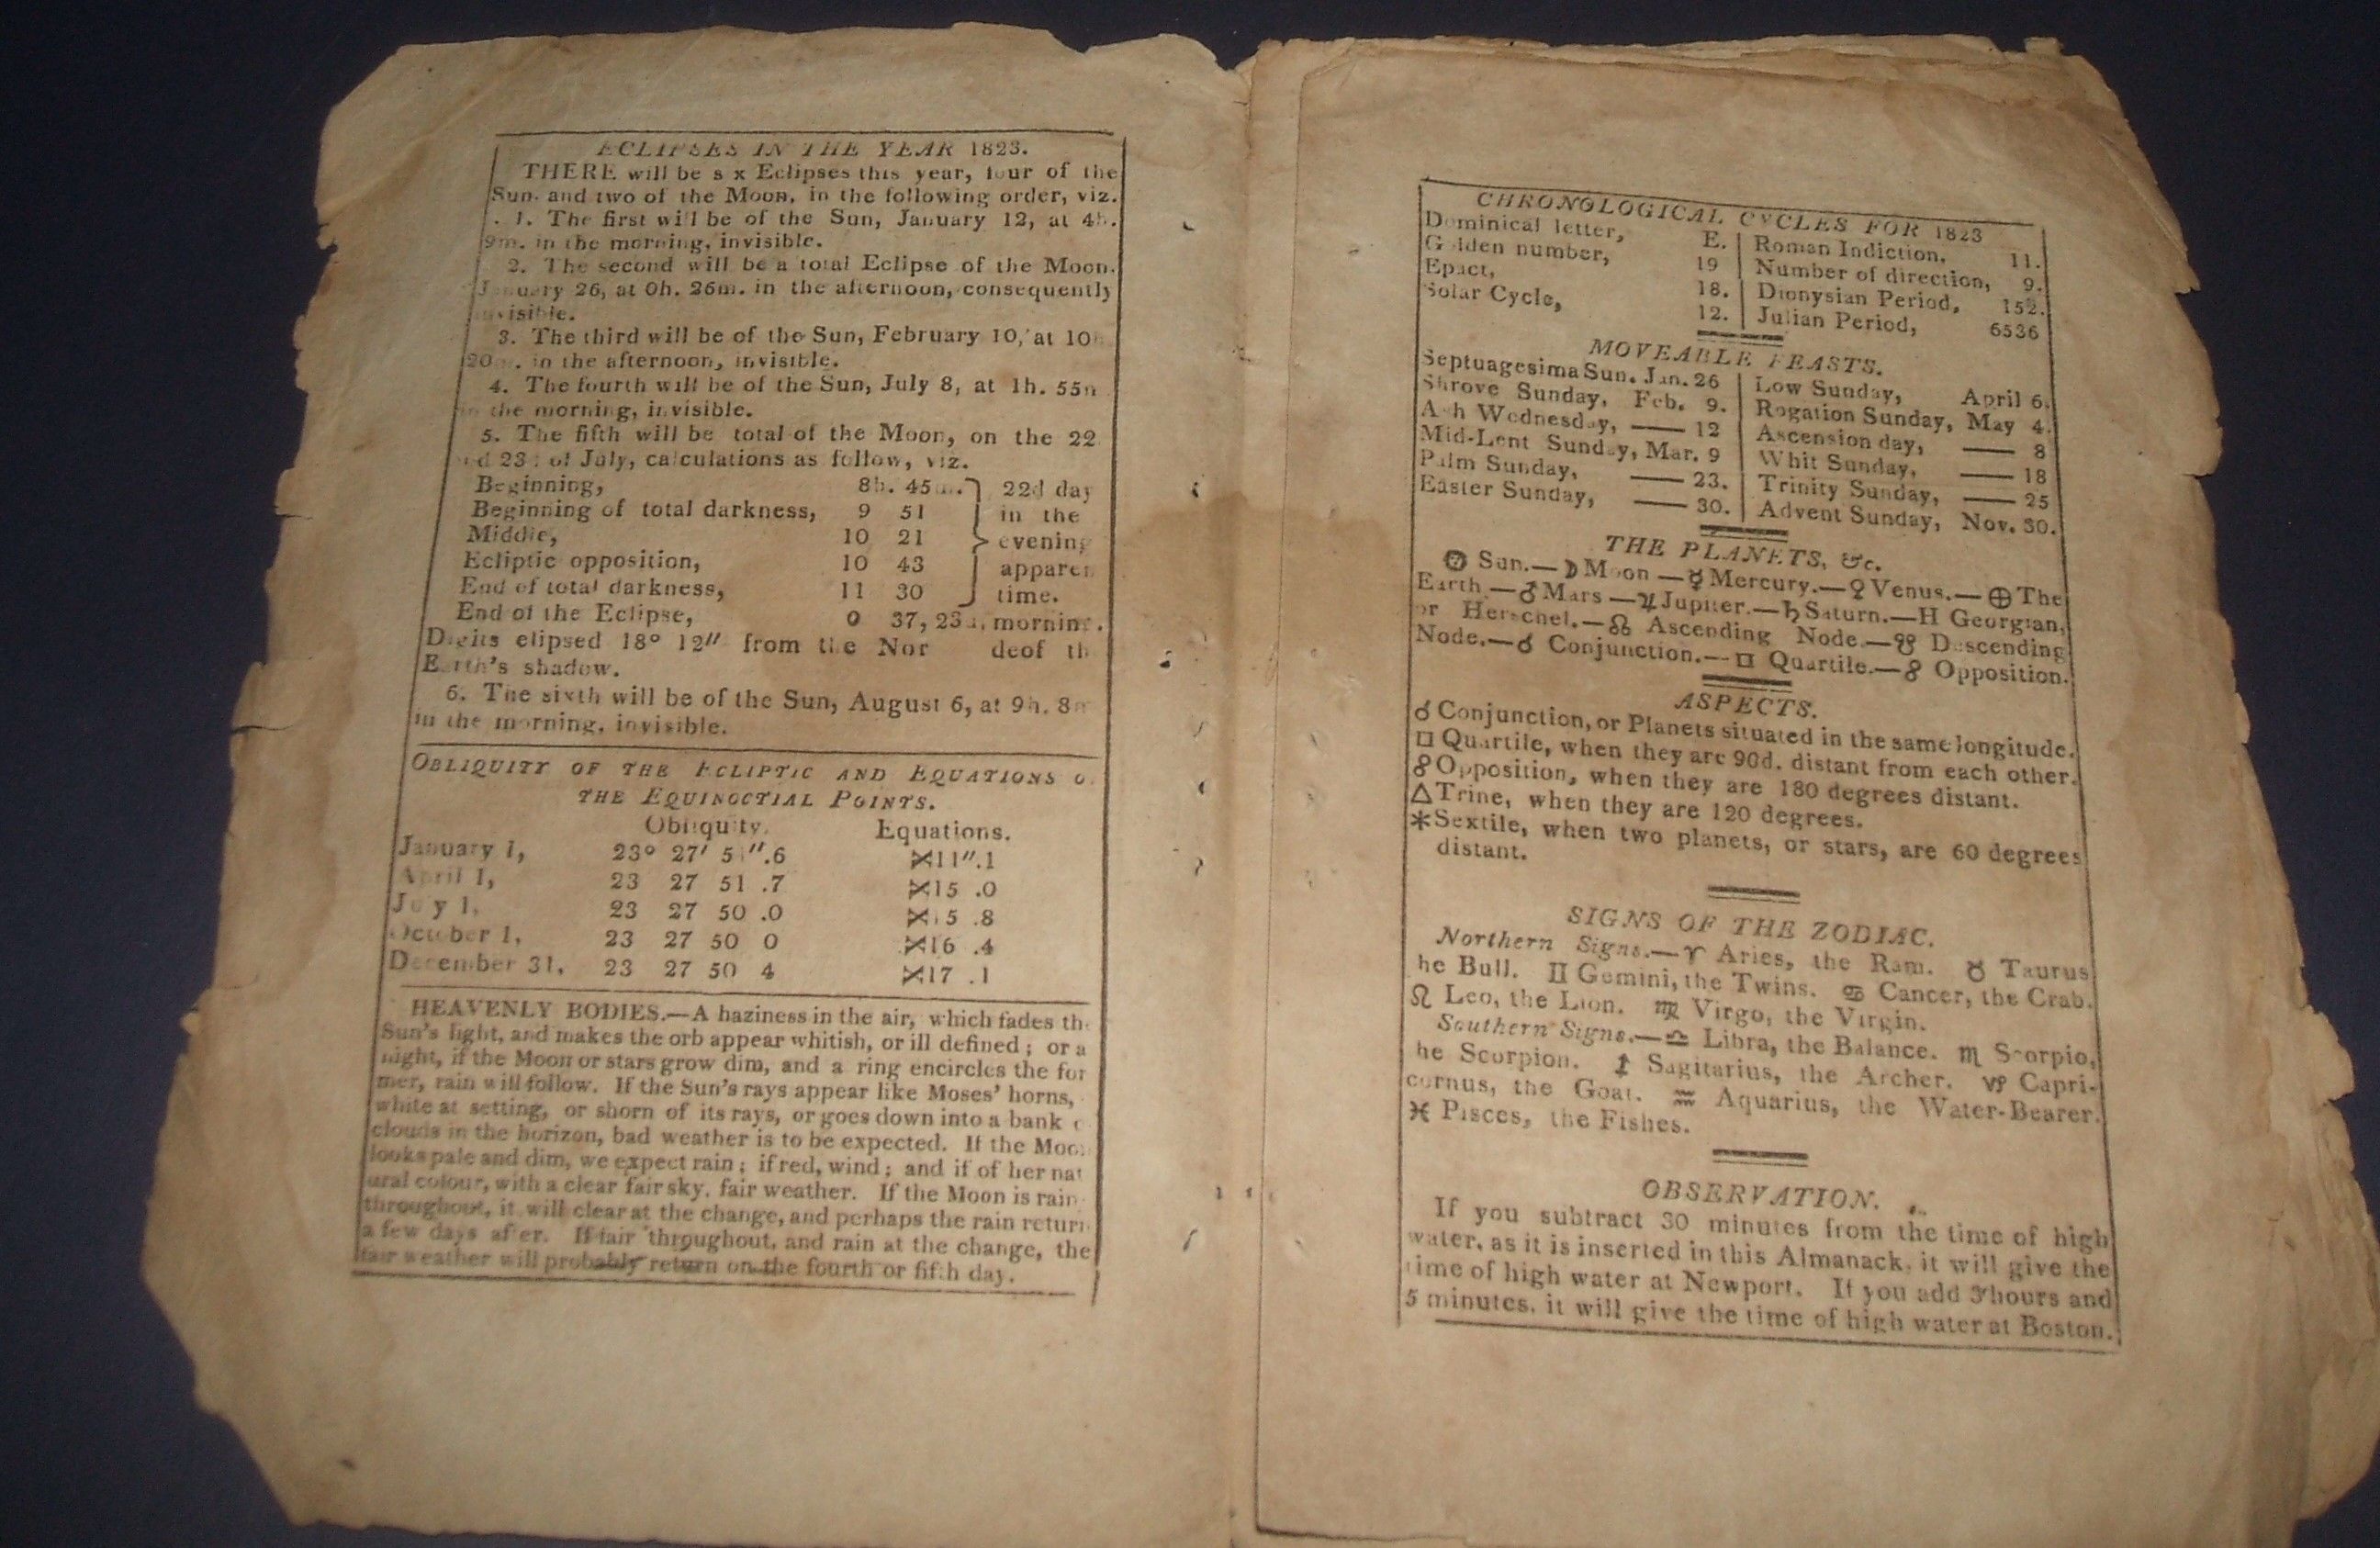 ECLIPSES IN THE YEAR 1823.
THERE will be s x Eclipses this year, four of the
Sun. and two of the Moon, in the following order, viz.
1. The first will be of the Sun, January 12, at 4h.
9m. in the morning, invisible.
2. The second will be a total Eclipse of the Moon.
January 26, at 0h. 26m. in the afternoon, consequently
invisible.
3. The third will be of the Sun, February 10, at 10h
20m. in the afternoon, invisible.
4. The fourth will be of the Sun, July 8, at 1h. 55m
in the morning, invisible.
5. The fifth will be total of the Moon, on the 22
23 of July, calculations as follow, viz.
Beginning, 8h. 45m. } 22d day
Beginning of total darkness, 9 51 in the
Middle, 10 21 evening
Ecliptic opposition, 10 43 apparen
End of total darkness, 11 30 time.
End of the Eclipse, 0 37, 23d, morning.
Digits elipsed 18° 12″ from the Nor deof th
Earth's shadow.
6. The sixth will be of the Sun, August 6, at 9h. 8m
in the morning, invisible.
OBLIQUITY OF THE ECLIPTIC AND EQUATIONS O
THE EQUINOCTIAL POINTS.
Obliquity. Equations.
January 1, 23° 27′ 51″.6 X11″.1
April 1, 23 27 51 .7 X15 .0
July 1, 23 27 50 .0 X15 .8
October 1, 23 27 50 0 X16 .4
December 31, 23 27 50 4 X17 .1
HEAVENLY BODIES.—A haziness in the air, which fades the
Sun's light, and makes the orb appear whitish, or ill defined ; or a
night, if the Moon or stars grow dim, and a ring encircles the for
mer, rain will follow. If the Sun's rays appear like Moses' horns,
white at setting, or shorn of its rays, or goes down into a bank o
clouds in the horizon, bad weather is to be expected. If the Moon
looks pale and dim, we expect rain ; if red, wind ; and if of her nat
ural colour, with a clear fair sky, fair weather. If the Moon is rain
throughout, it will clear at the change, and perhaps the rain return
a few days after. If fair throughout, and rain at the change, the
fair weather will probably return on the fourth or fifth day.
CHRONOLOGICAL CYCLES FOR 1823
Dominical letter, E. | Roman Indiction, 11.
Golden number, 19 | Number of direction, 9.
Epact, 18. | Dionysian Period, 152.
Solar Cycle, 12. | Julian Period, 6536
MOVEABLE FEASTS.
Septuagesima Sun. Jan. 26 | Low Sunday, April 6.
Shrove Sunday, Feb. 9. | Rogation Sunday, May 4.
Ash Wednesday, —— 12 | Ascension day, —— 8
Mid-Lent Sunday, Mar. 9 | Whit Sunday, —— 18
Palm Sunday, —— 23. | Trinity Sunday, —— 25
Easter Sunday, —— 30. | Advent Sunday, Nov. 30.
THE PLANETS, &c.
☉ Sun.—☽ Moon —☿ Mercury.—♀ Venus.—⊕ The
Earth —♂ Mars —♃ Jupiter.—♄ Saturn.—H Georgian,
or Herschel.—☊ Ascending Node.—☋ Descending
Node.—☌ Conjunction.—□ Quartile.—☍ Opposition.
ASPECTS.
☌ Conjunction, or Planets situated in the same longitude.
□ Quartile, when they are 90d. distant from each other.
☍ Opposition, when they are 180 degrees distant.
△ Trine, when they are 120 degrees.
✶ Sextile, when two planets, or stars, are 60 degrees
distant.
SIGNS OF THE ZODIAC.
Northern Signs.—♈ Aries, the Ram. ♉ Taurus
he Bull. ♊ Gemini, the Twins. ♋ Cancer, the Crab.
♌ Leo, the Lion. ♍ Virgo, the Virgin.
Southern Signs.—♎ Libra, the Balance. ♏ Scorpio,
he Scorpion. ♐ Sagitarius, the Archer. ♑ Capri-
cornus, the Goat. ♒ Aquarius, the Water-Bearer.
♓ Pisces, the Fishes.
OBSERVATION.
If you subtract 30 minutes from the time of high
water, as it is inserted in this Almanack, it will give the
time of high water at Newport. If you add 3 hours and
5 minutes, it will give the time of high water at Boston.